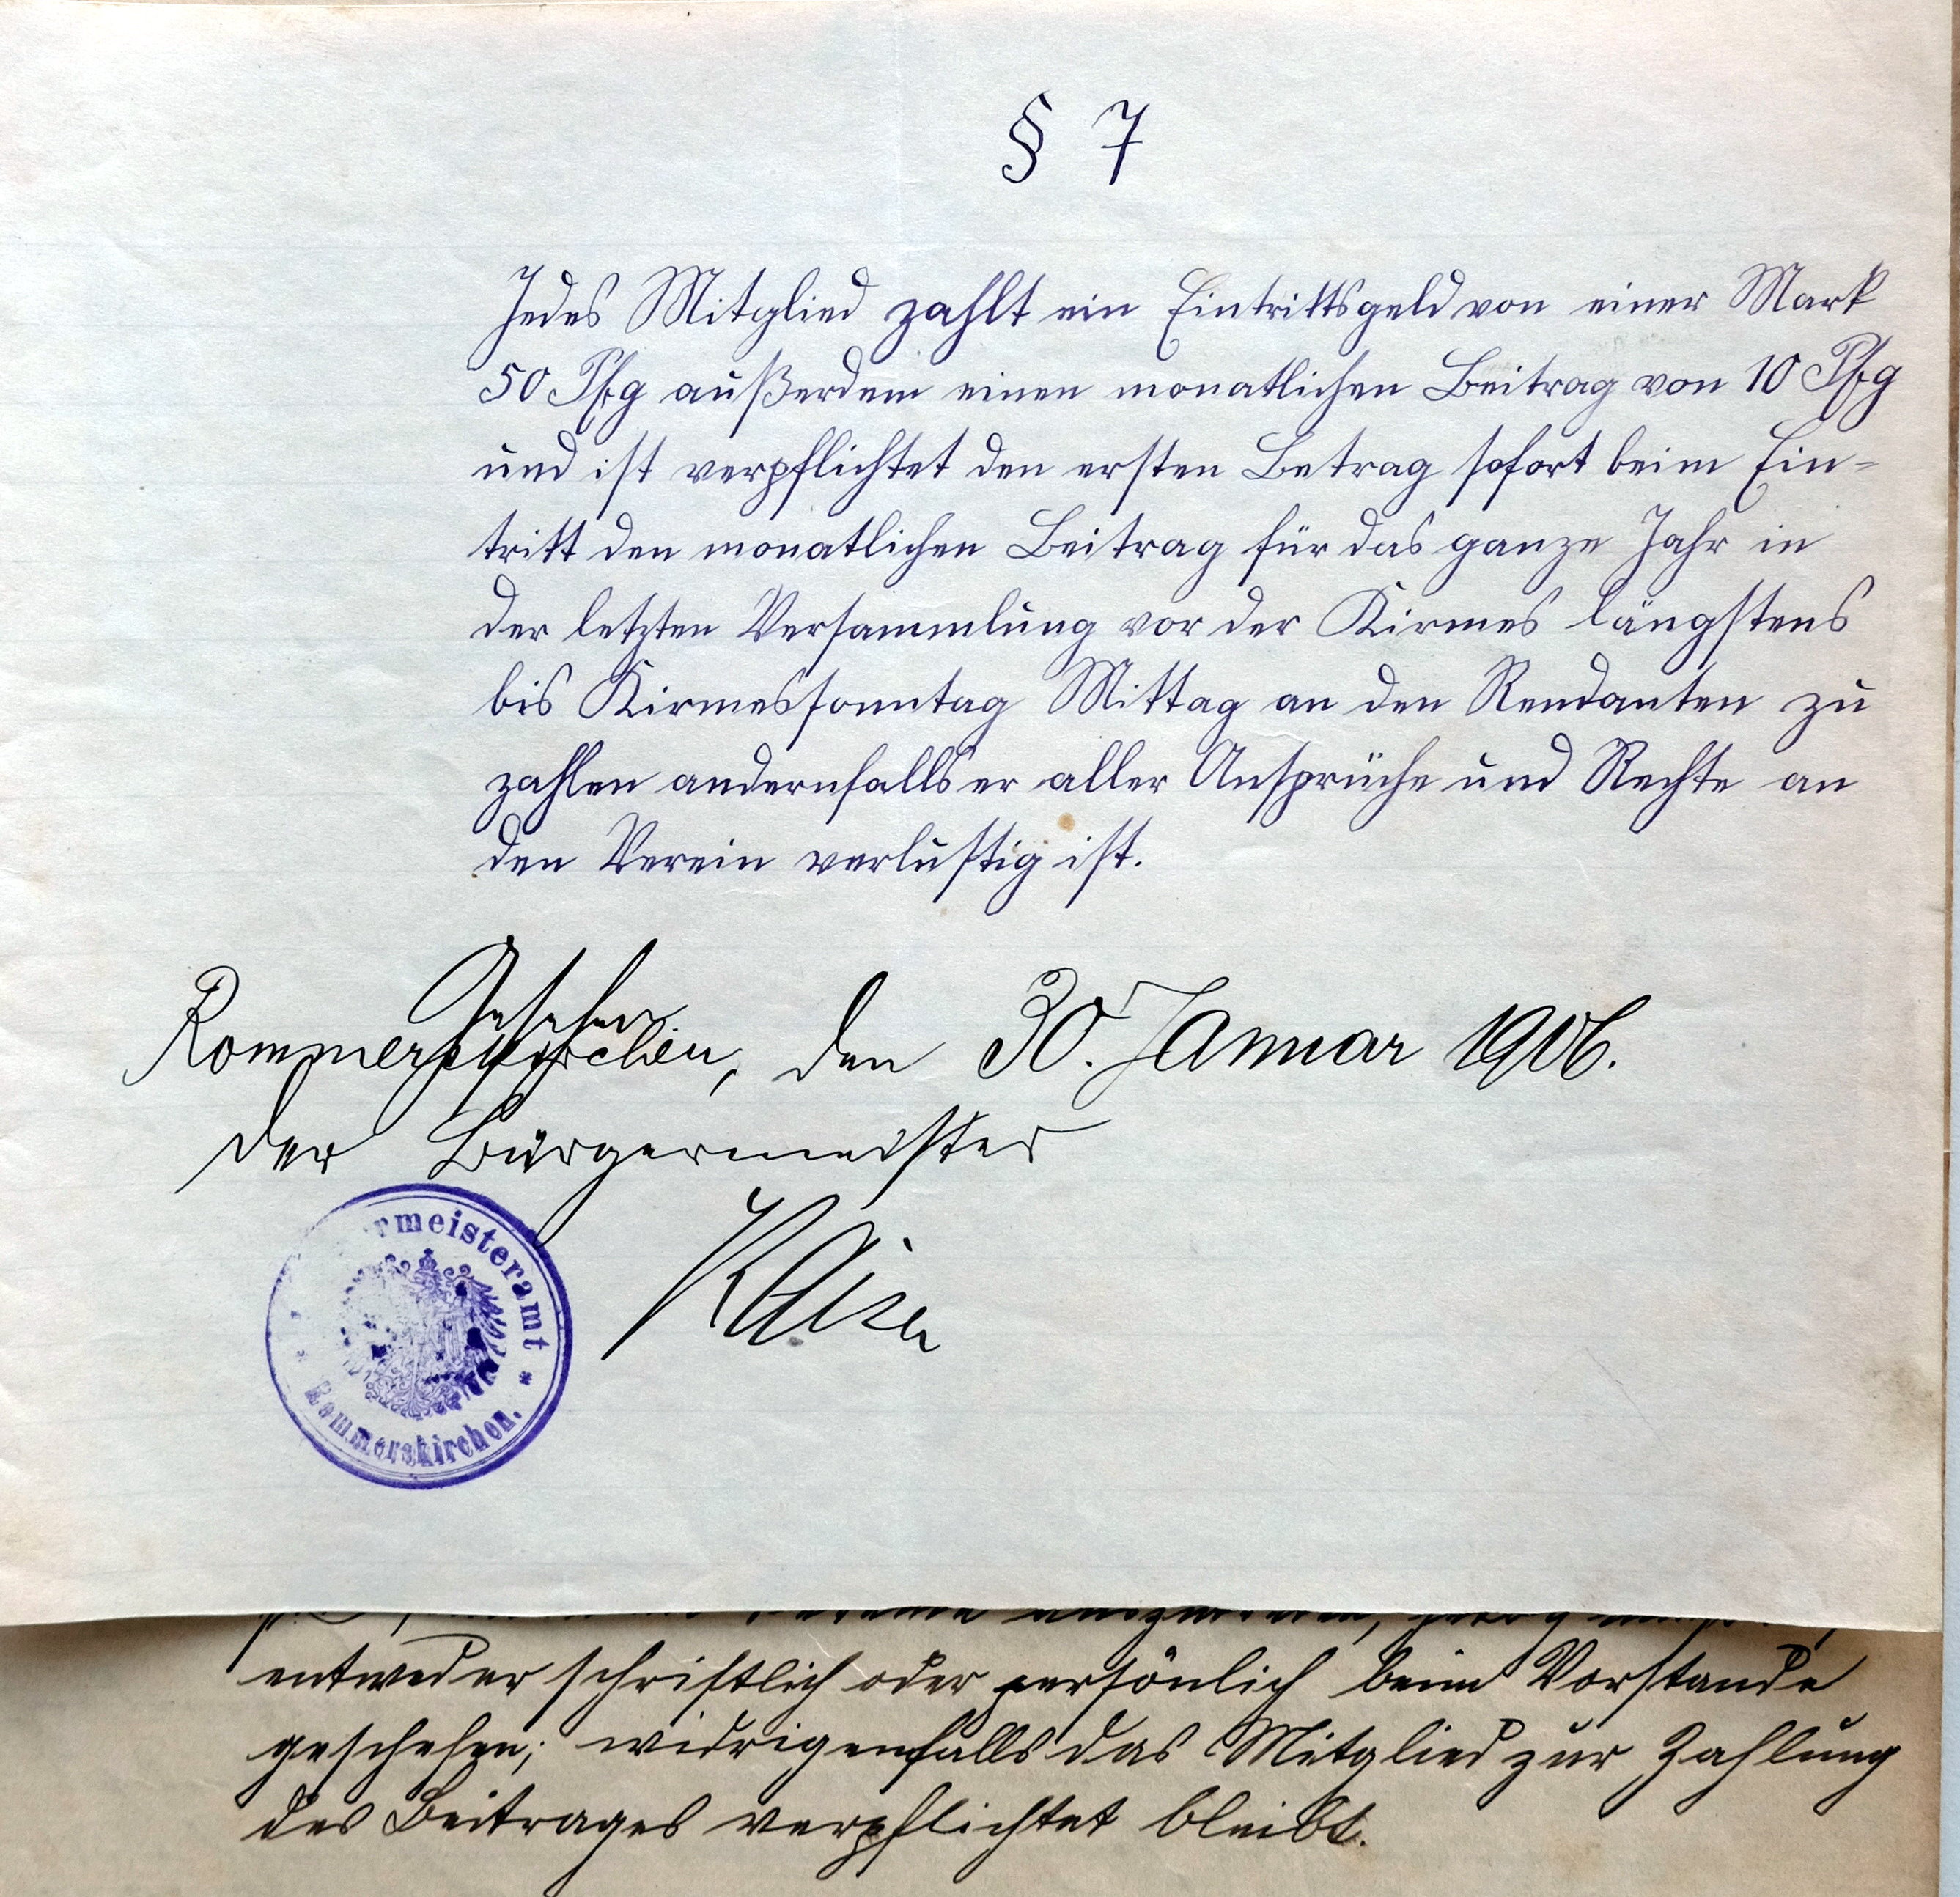 § 7
Jedes Mitglied zahlt ein Eintrittsgeld von einer Mark
50 Pfg außerdem einen monatlichen Beitrag von 10 Pfg
und ist verpflichtet den ersten Betrag sofort beim Ein=
tritt den monatlichen Beitrag für das ganze Jahr in
der letzten Versammlung vor der Kirmes längstens
bis Kirmessonntag Mittag an den Rendanten zu
zahlen andernfalls er aller Ansprüche und Rechte an
den Verein verlustig ist.
Gesehen.
Rommerskirchen, den 30. Januar 1906.
Der Bürgermeister
rmeisteramt *
Rommerskirchen.
entweder schriftlich oder persönlich beim Vorstande
geschehen; widrigenfalls das Mitglied zur Zahlung
des Beitrages verpflichtet bleibt.